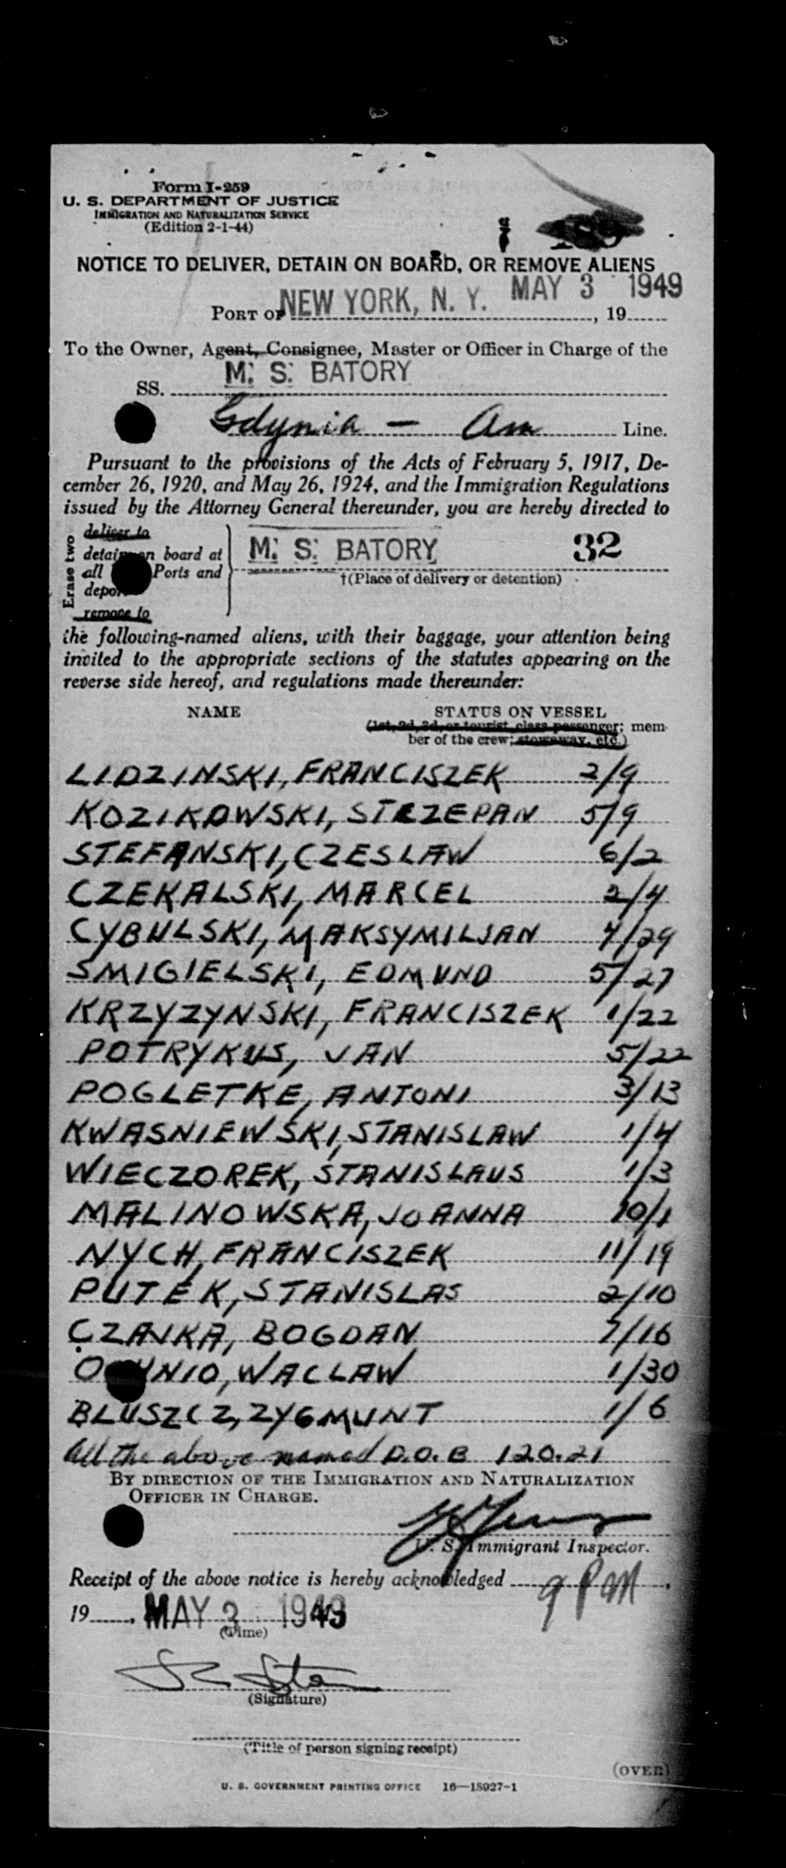 Form I-259
U. S. DEPARTMENT OF JUSTICE
IMMIGRATION AND NATURALIZATION SERVICE
(Edition 2-1-44)
NOTICE TO DELIVER, DETAIN ON BOARD, OR REMOVE ALIENS
PORT OF NEW YORK, N. Y. MAY 3 1949, 19
To the Owner, Agent, Consignee, Master or Officer in Charge of the
SS. M. S. BATORY
Gdynia - Am Line.
Pursuant to the provisions of the Acts of February 5, 1917, De-
cember 26, 1920, and May 26, 1924, and the Immigration Regulations
issued by the Attorney General thereunder, you are hereby directed to
Erase two
deliver to
detain on board at
all Ports and
M. S. BATORY 32
†(Place of delivery or detention)
remove to
the following-named aliens, with their baggage, your attention being
invited to the appropriate sections of the statutes appearing on the
reverse side hereof, and regulations made thereunder:
NAME STATUS ON VESSEL
(1st, 2d, 3d, or tourist class passenger; mem-
ber of the crew; stowaway, etc.)
LIDZINSKI, FRANCISZEK 2/9
KOZIKOWSKI, STCZEPAN 5/9
STEFANSKI, CZESLAW 6/2
CZEKALSKI, MARCEL 2/4
CYBULSKI, MAKSYMILJAN 4/29
SMIGIELSKI, EDMUND 5/27
KRZYZYNSKI, FRANCISZEK 1/22
POTRYKUS, JAN 5/22
POGLETKE, ANTONI 3/13
KWASNIEWSKI, STANISLAW 1/4
WIECZOREK, STANISLAUS 1/3
MALINOWSKA, JOANNA 10/1
NYCH, FRANCISZEK 11/19
PUTEK, STANISLAS 2/10
CZAJKA, BOGDAN 7/16
WACLAW 1/30
BLUSZCZ, ZYGMUNT 1/6
All the above named D.O.B 120.21
BY DIRECTION OF THE IMMIGRATION AND NATURALIZATION
OFFICER IN CHARGE.
U. S. Immigrant Inspector.
Receipt of the above notice is hereby acknowledged 9 PM,
19, MAY 3 1949
(Time)
(Signature)
(Title of person signing receipt)
(OVER)
U. S. GOVERNMENT PRINTING OFFICE 16—18927-1